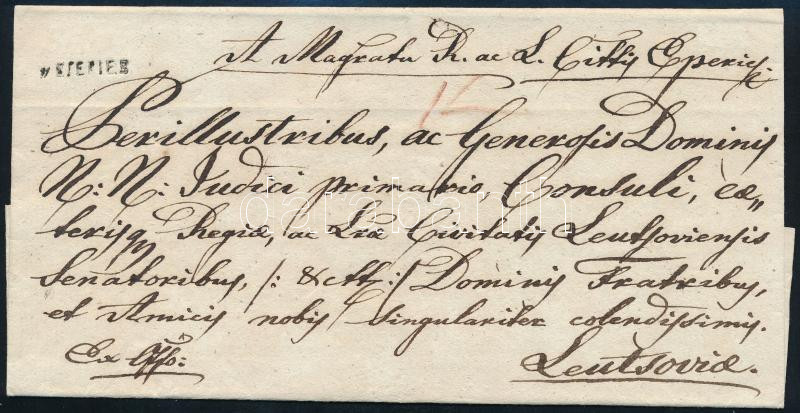 A Magratu R. ac L. Cittis Eperies:
EPERIES
Perillustribus, ac Generosis Dominis
N: N: Judici primario, Consuli, cæ„
terisq Regiæ, ac Lræ Civitatis Leutsoviensis
Senatoribus, /: &ctt :/ Dominis Fratribus,
et Amicis nobis singulariter colendissimis.
Ex Offo:
Leutsoviæ.
databanth